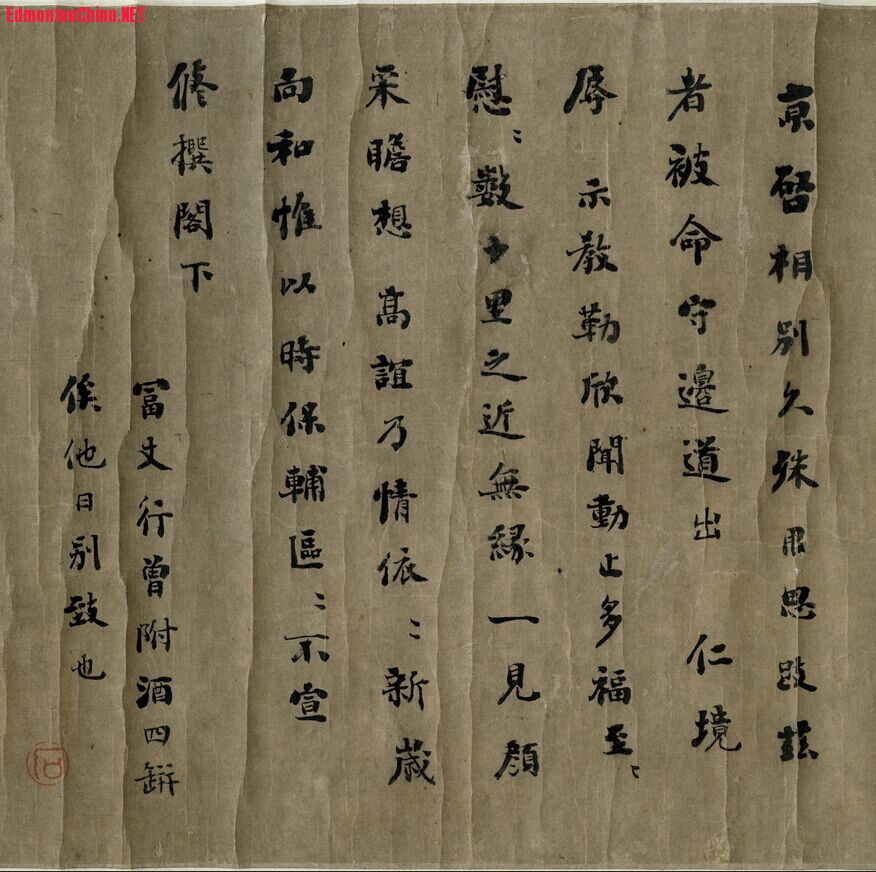 EdmonianChina.NET
京啓相別久殊用思跂茲
者被命守邊道出 仁境
辱 示教勤欣聞動止多福至〻
慰〻數十里之近無緣一見顏
采瞻想 高誼乃情依〻新歲
向和惟以時保輔區〻不宣
脩撰閤下
富丈行曾附酒四缾
俟他日別致也
石